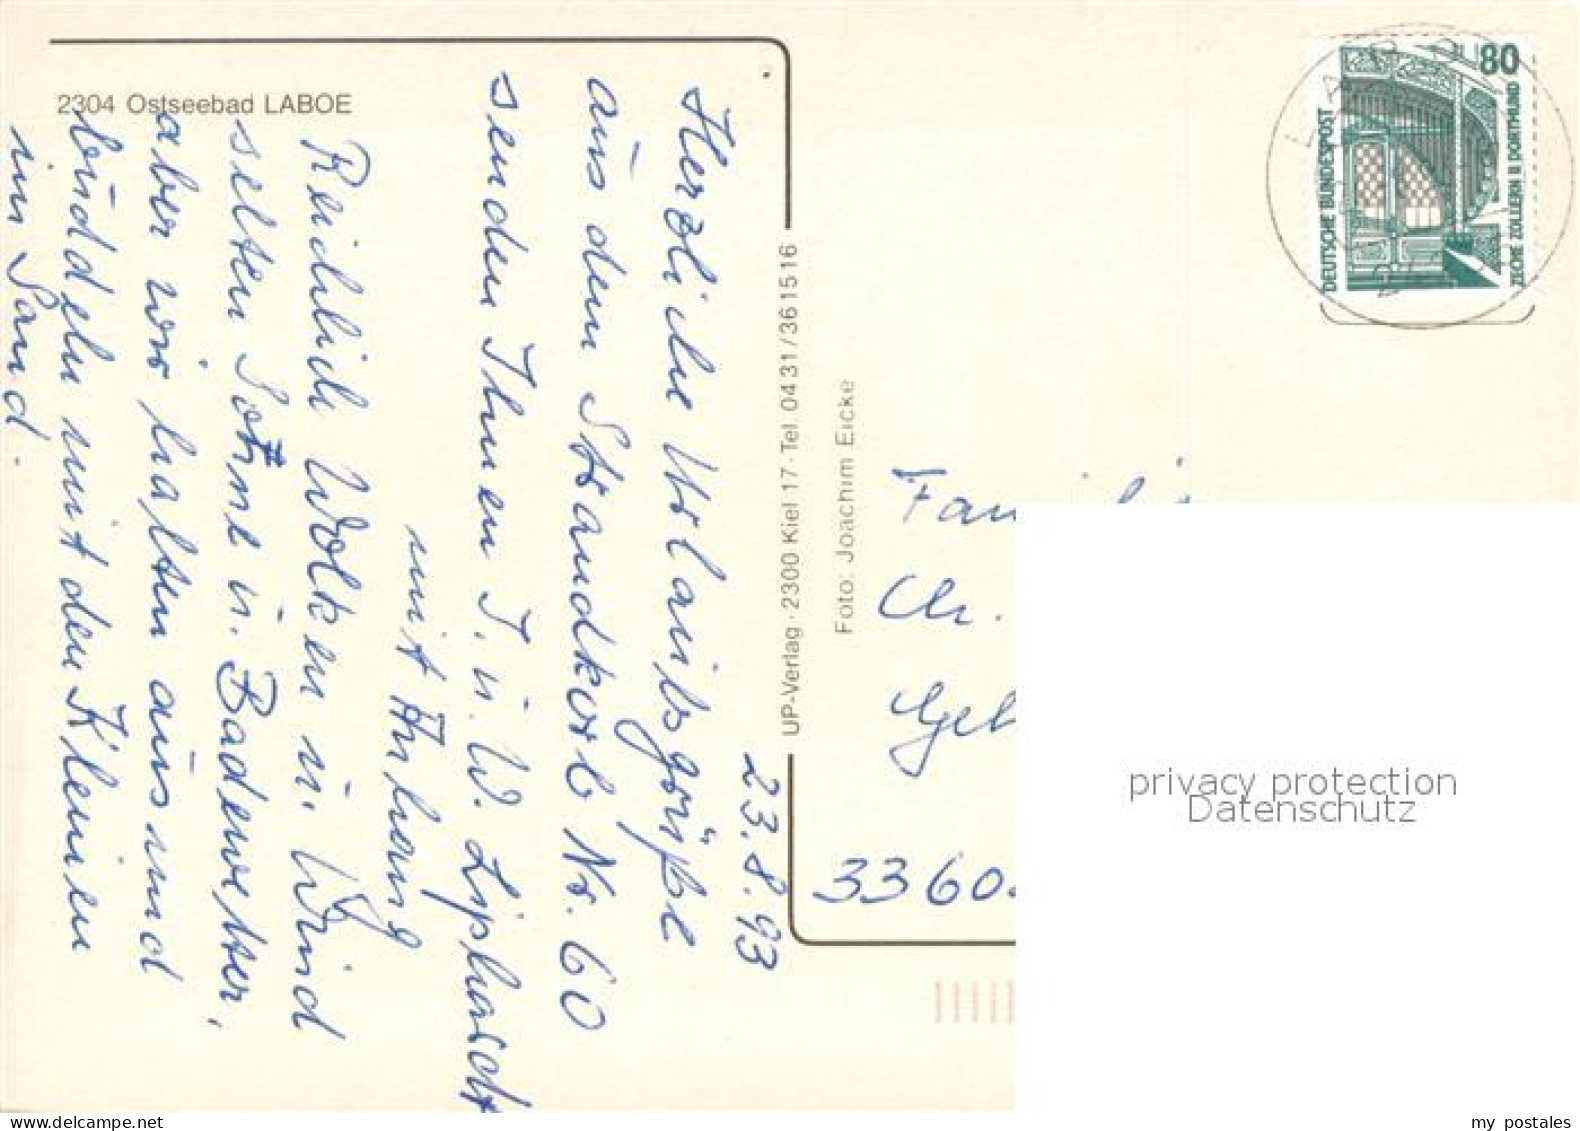 2304 Ostseebad LABOE
23.8.93
Herzliche Urlaubsgrüße
aus dem Strandkorb Nr. 60
senden Ihnen I. u. W. Liphardt
mit Anhang
Reichlich Wolken u. Wind
selten Sonne u. Badewetter,
aber wir halten aus und
buddeln mit den Kleinen
im Sand.
UP-Verlag · 2300 Kiel 17 · Tel. 04 31 / 36 15 16
Foto: Joachim Eicke
80
DEUTSCHE BUNDESPOST
ZECHE ZOLLERN II DORTMUND
Famili
Chr.
Geb
3360
privacy protection
Datenschutz
my postales